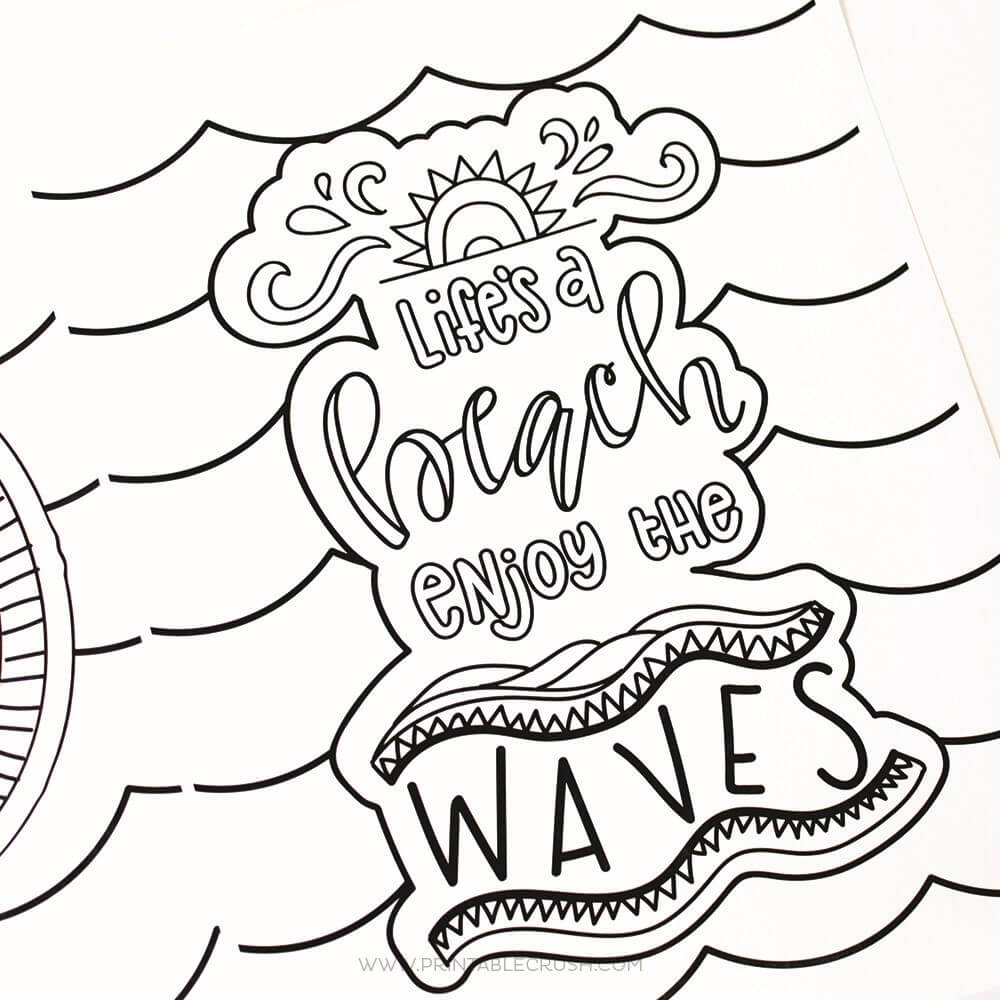 Life's a
beach
enjoy the
WAVES
WWW.PRINTABLECRUSH.COM